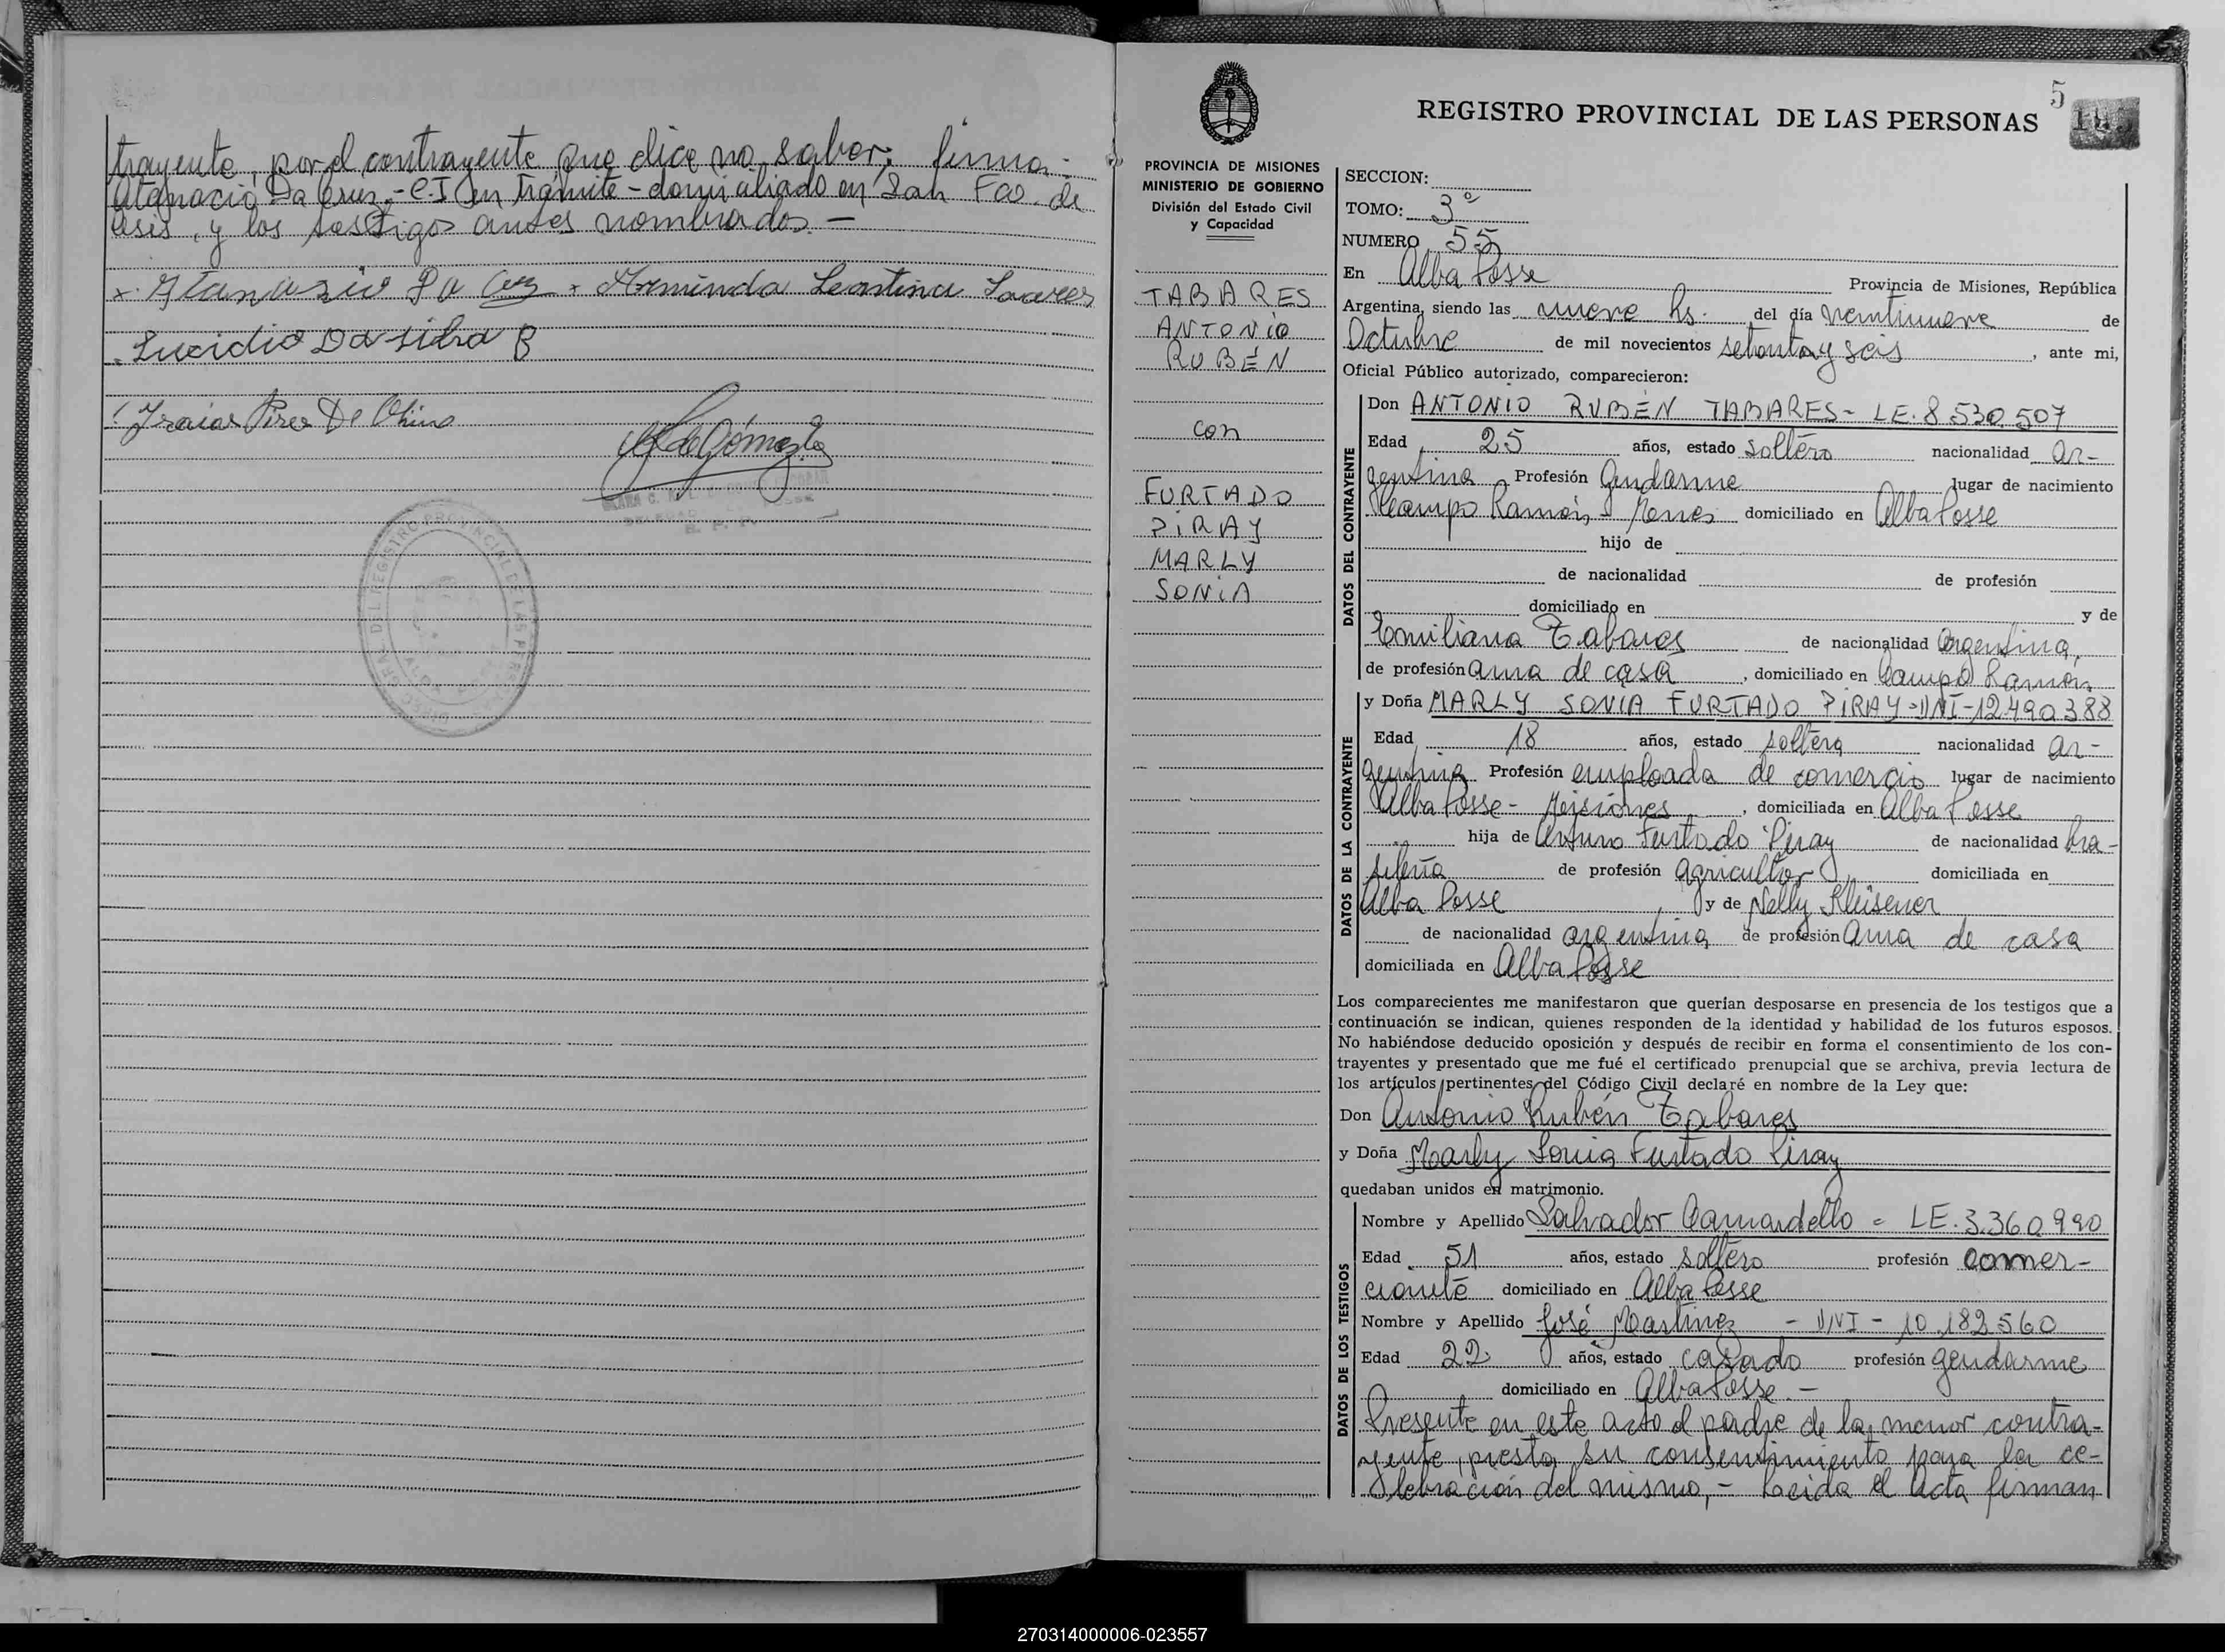 trayente, por el contrayente que dice no saber; firma:
Atanacio Da Cruz - C.I en trámite - domiciliado en San Fco. de
Asis, y los testigos antes nombrados. -
x. Atanazio Da Cruz x Arminda Leontina Soares
Lucidio Da silva B
Izaias Pires De
REGISTRO PROVINCIAL DE LAS PERSONAS
5
PROVINCIA DE MISIONES
MINISTERIO DE GOBIERNO
División del Estado Civil
y Capacidad
TABARES
ANTONIO
RUBÉN
con
FURTADO
PIRAY
MARLY
SONIA
SECCION:
TOMO: 3º
NUMERO 55
En Alba Posse Provincia de Misiones, República
Argentina, siendo las nueve hs. del día veintinueve de
Octubre de mil novecientos setenta y seis, ante mi,
Oficial Público autorizado, comparecieron:
DATOS DEL CONTRAYENTE
Don ANTONIO RUBÉN TABARES - LE. 8.530.507
Edad 25 años, estado soltero nacionalidad ar-
gentina Profesión Gendarme lugar de nacimiento
Campo Ramón - Mnes domiciliado en Alba Posse
hijo de
de nacionalidad de profesión
domiciliado en y de
Emiliana Tabares de nacionalidad argentina,
de profesión ama de casa, domiciliado en Campo Ramón
DATOS DE LA CONTRAYENTE
y Doña MARLY SONIA FURTADO PIRAY - DNI - 12.490.388
Edad 18 años, estado soltera nacionalidad ar-
gentina Profesión empleada de comercio lugar de nacimiento
Alba Posse - Misiones, domiciliada en Alba Posse
hija de Arturo Furtado Piray de nacionalidad bra-
sileña de profesión agricultor domiciliada en
Alba Posse, y de Nelly Kleisener
de nacionalidad argentina de profesión ama de casa
domiciliada en Alba Posse
Los comparecientes me manifestaron que querían desposarse en presencia de los testigos que a
continuación se indican, quienes responden de la identidad y habilidad de los futuros esposos.
No habiéndose deducido oposición y después de recibir en forma el consentimiento de los con-
trayentes y presentado que me fué el certificado prenupcial que se archiva, previa lectura de
los artículos pertinentes del Código Civil declaré en nombre de la Ley que:
Don Antonio Rubén Tabares
y Doña Marly Sonia Furtado Piray
quedaban unidos en matrimonio.
DATOS DE LOS TESTIGOS
Nombre y Apellido Salvador Camardello - LE. 3.360.990
Edad 51 años, estado soltero profesión comer-
ciante domiciliado en Alba Posse
Nombre y Apellido José Martinez - DNI - 10.182.560
Edad 22 años, estado casado profesión gendarme
domiciliado en Alba Posse. -
Presente en este acto el padre de la menor contra-
yente, presta su consentimiento para la ce-
lebración del mismo, - Leida el Acta firman
270314000006-023557